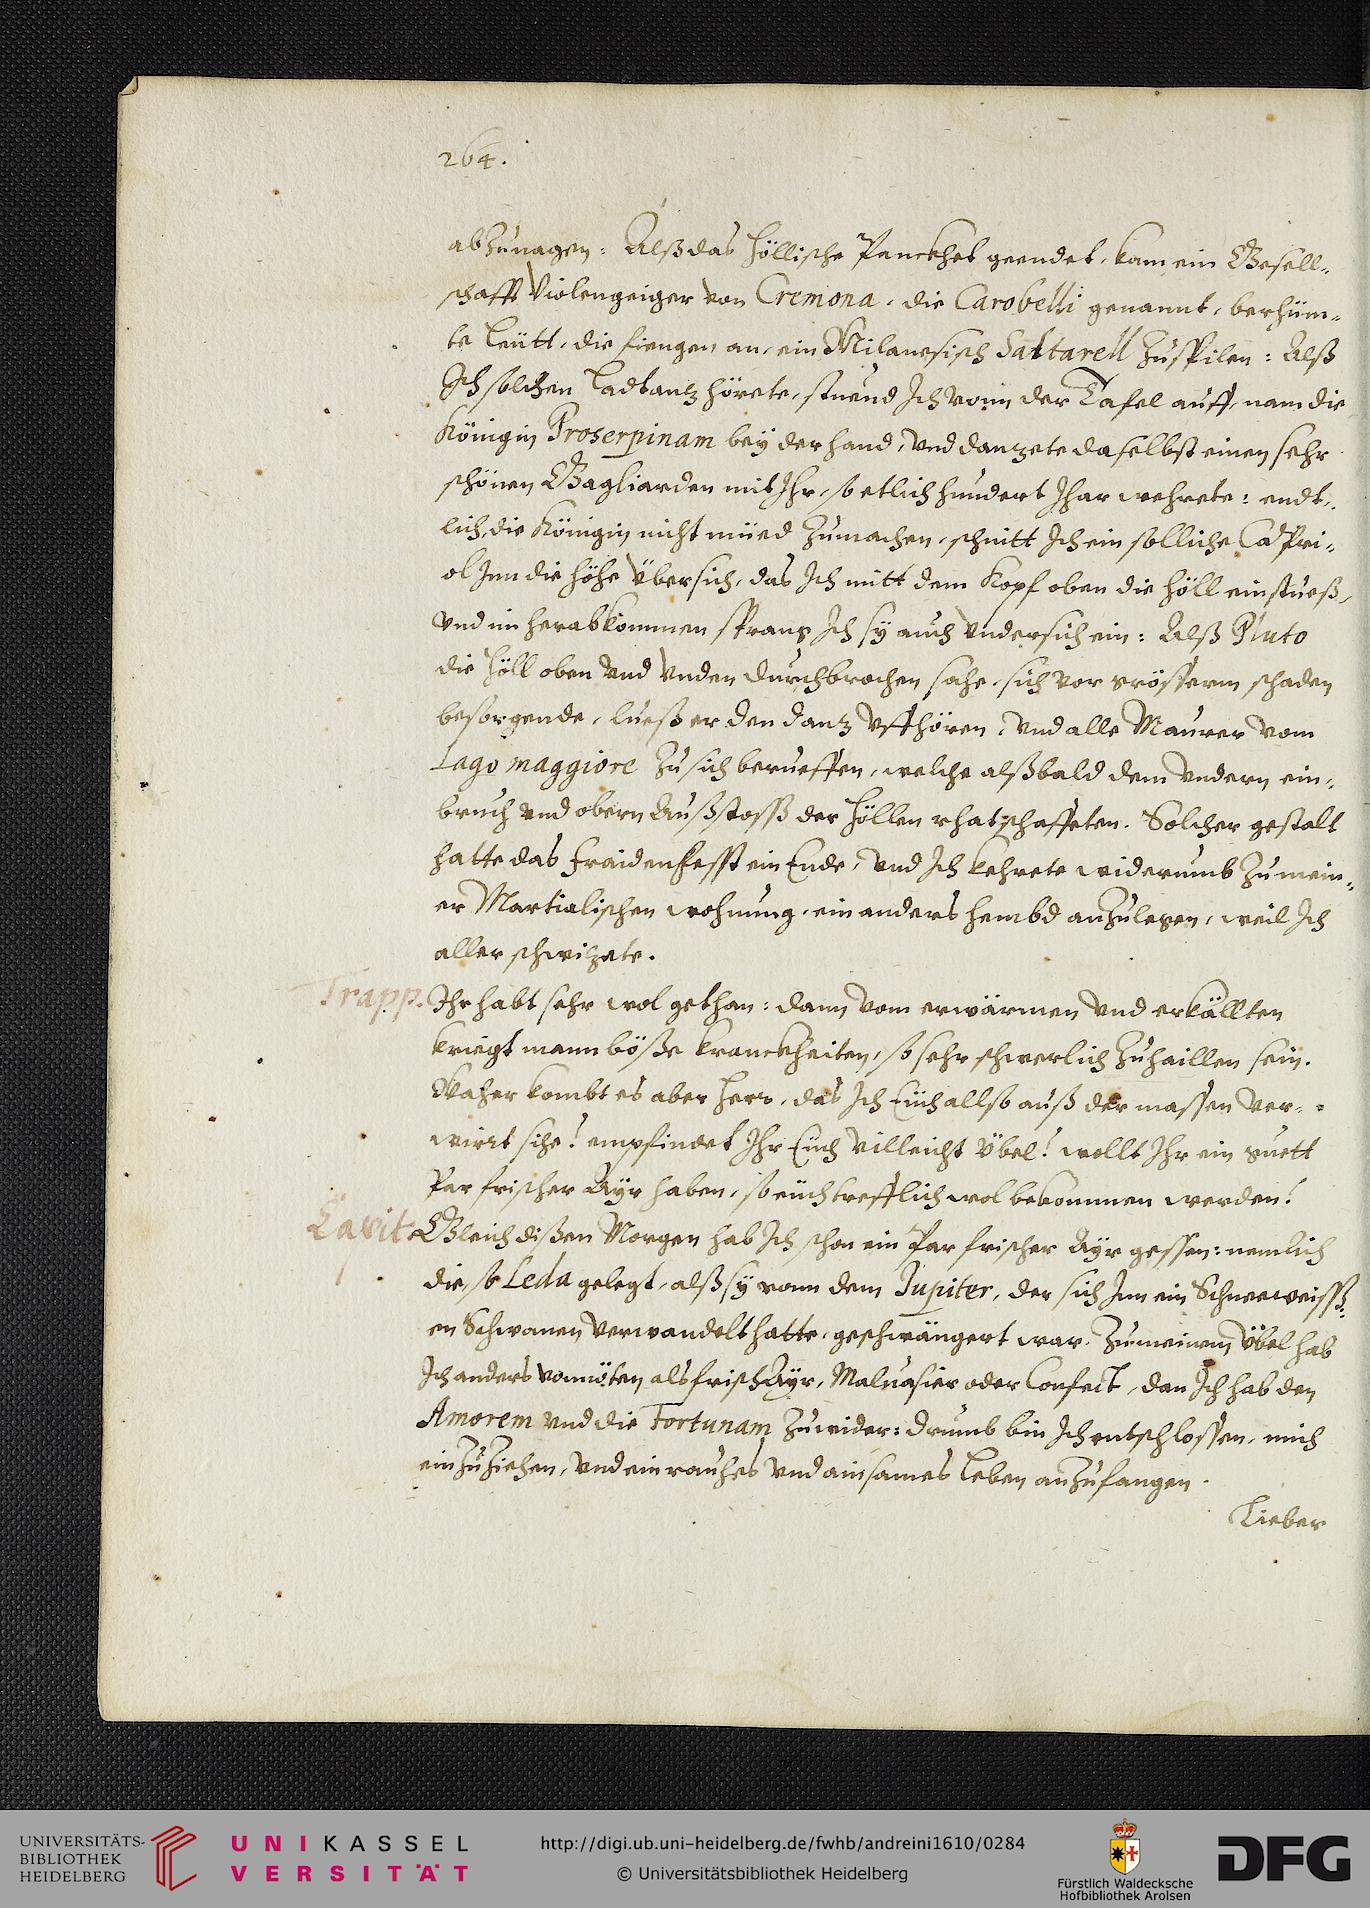 264.
abzunagen: Alß das Höllische Panckhet geendet, kam ein Gesell-
schafft Violengeiger von Cremona, die Carobelli genannt, berhüm-
te Leütt, die fiengen an, ein Milanesisch Saltarell zuspilen: Alß
Ich solchen Ladtantz hörete, stuend Ich vonn der Tafel auff, nam die
Königin Proserpinam bey der hand, vnd danzete daselbst einen sehr
schönen Gagliarden mit Ihr, so etlich hundert Jhar wehrete: endt-
lich, die Königin nicht müed zumachen, schnitt Ich ein solliche Capri-
ol Inn die höhe übersich, das Ich mitt dem Kopf oben die Höll einstueß,
vnd im herabkommen sprang Ich sy auch vndersich ein: Alß Pluto
die Höll oben vnd vnden durchbrochen sahe, sich vor grösserm schaden
besorgende, ließ er den dantz vffhören, vnd alle Maurer vom
Lago maggiore zu sich berueffen, welche alßbald dem vndern ein-
bruch vnd obern Außstoß der Höllen rhat schaffeten. Solcher gestalt
hatte das fraidenfesst ein Ende, vnd Ich kehrete widerumb zu mein-
er Martialischen wohnung, ein anders hembd anzulegen, weil Ich
aller schwizete.
Trapp. Ihr habt sehr wol gethan: dann vom erwärmen vnd erkällten
kriegt mann böße kranckheiten, so sehr schwerlich zuhaillen sein.
Waher kombt es aber Herr, das Ich Eüch allso auß der massen ver-
wirrt sihe! empfindet Ihr Eüch villeicht übel! wollt Ihr ein guett
Par frischer Ayr haben, so eüch trefflich wol bekommen werden!
Capit. Gleich dißen Morgen hab Ich schon ein Par frischer Ayr gessen: nemlich
die, so Leda gelegt, alß sy vonn dem Jupiter, der sich Inn ein Schneeweiß-
en Schwanen verwandelt hatte, geschwängert war. Zu meinem übel hab
Ich anders vonnöten als frisch Ayr, Malvasier oder Confect, dan Ich hab den
Amorem vnd die Fortunam zuwider: drumb bin Ich entschlossen, mich
einzuziehen, vnd ein rauhes vnd ainsames Leben anzufangen.
Lieber
UNIVERSITÄTS-
BIBLIOTHEK
HEIDELBERG
UNIKASSEL
VERSITÄT
http://digi.ub.uni-heidelberg.de/fwhb/andreini1610/0284
© Universitätsbibliothek Heidelberg
Fürstlich Waldecksche
Hofbibliothek Arolsen
DFG